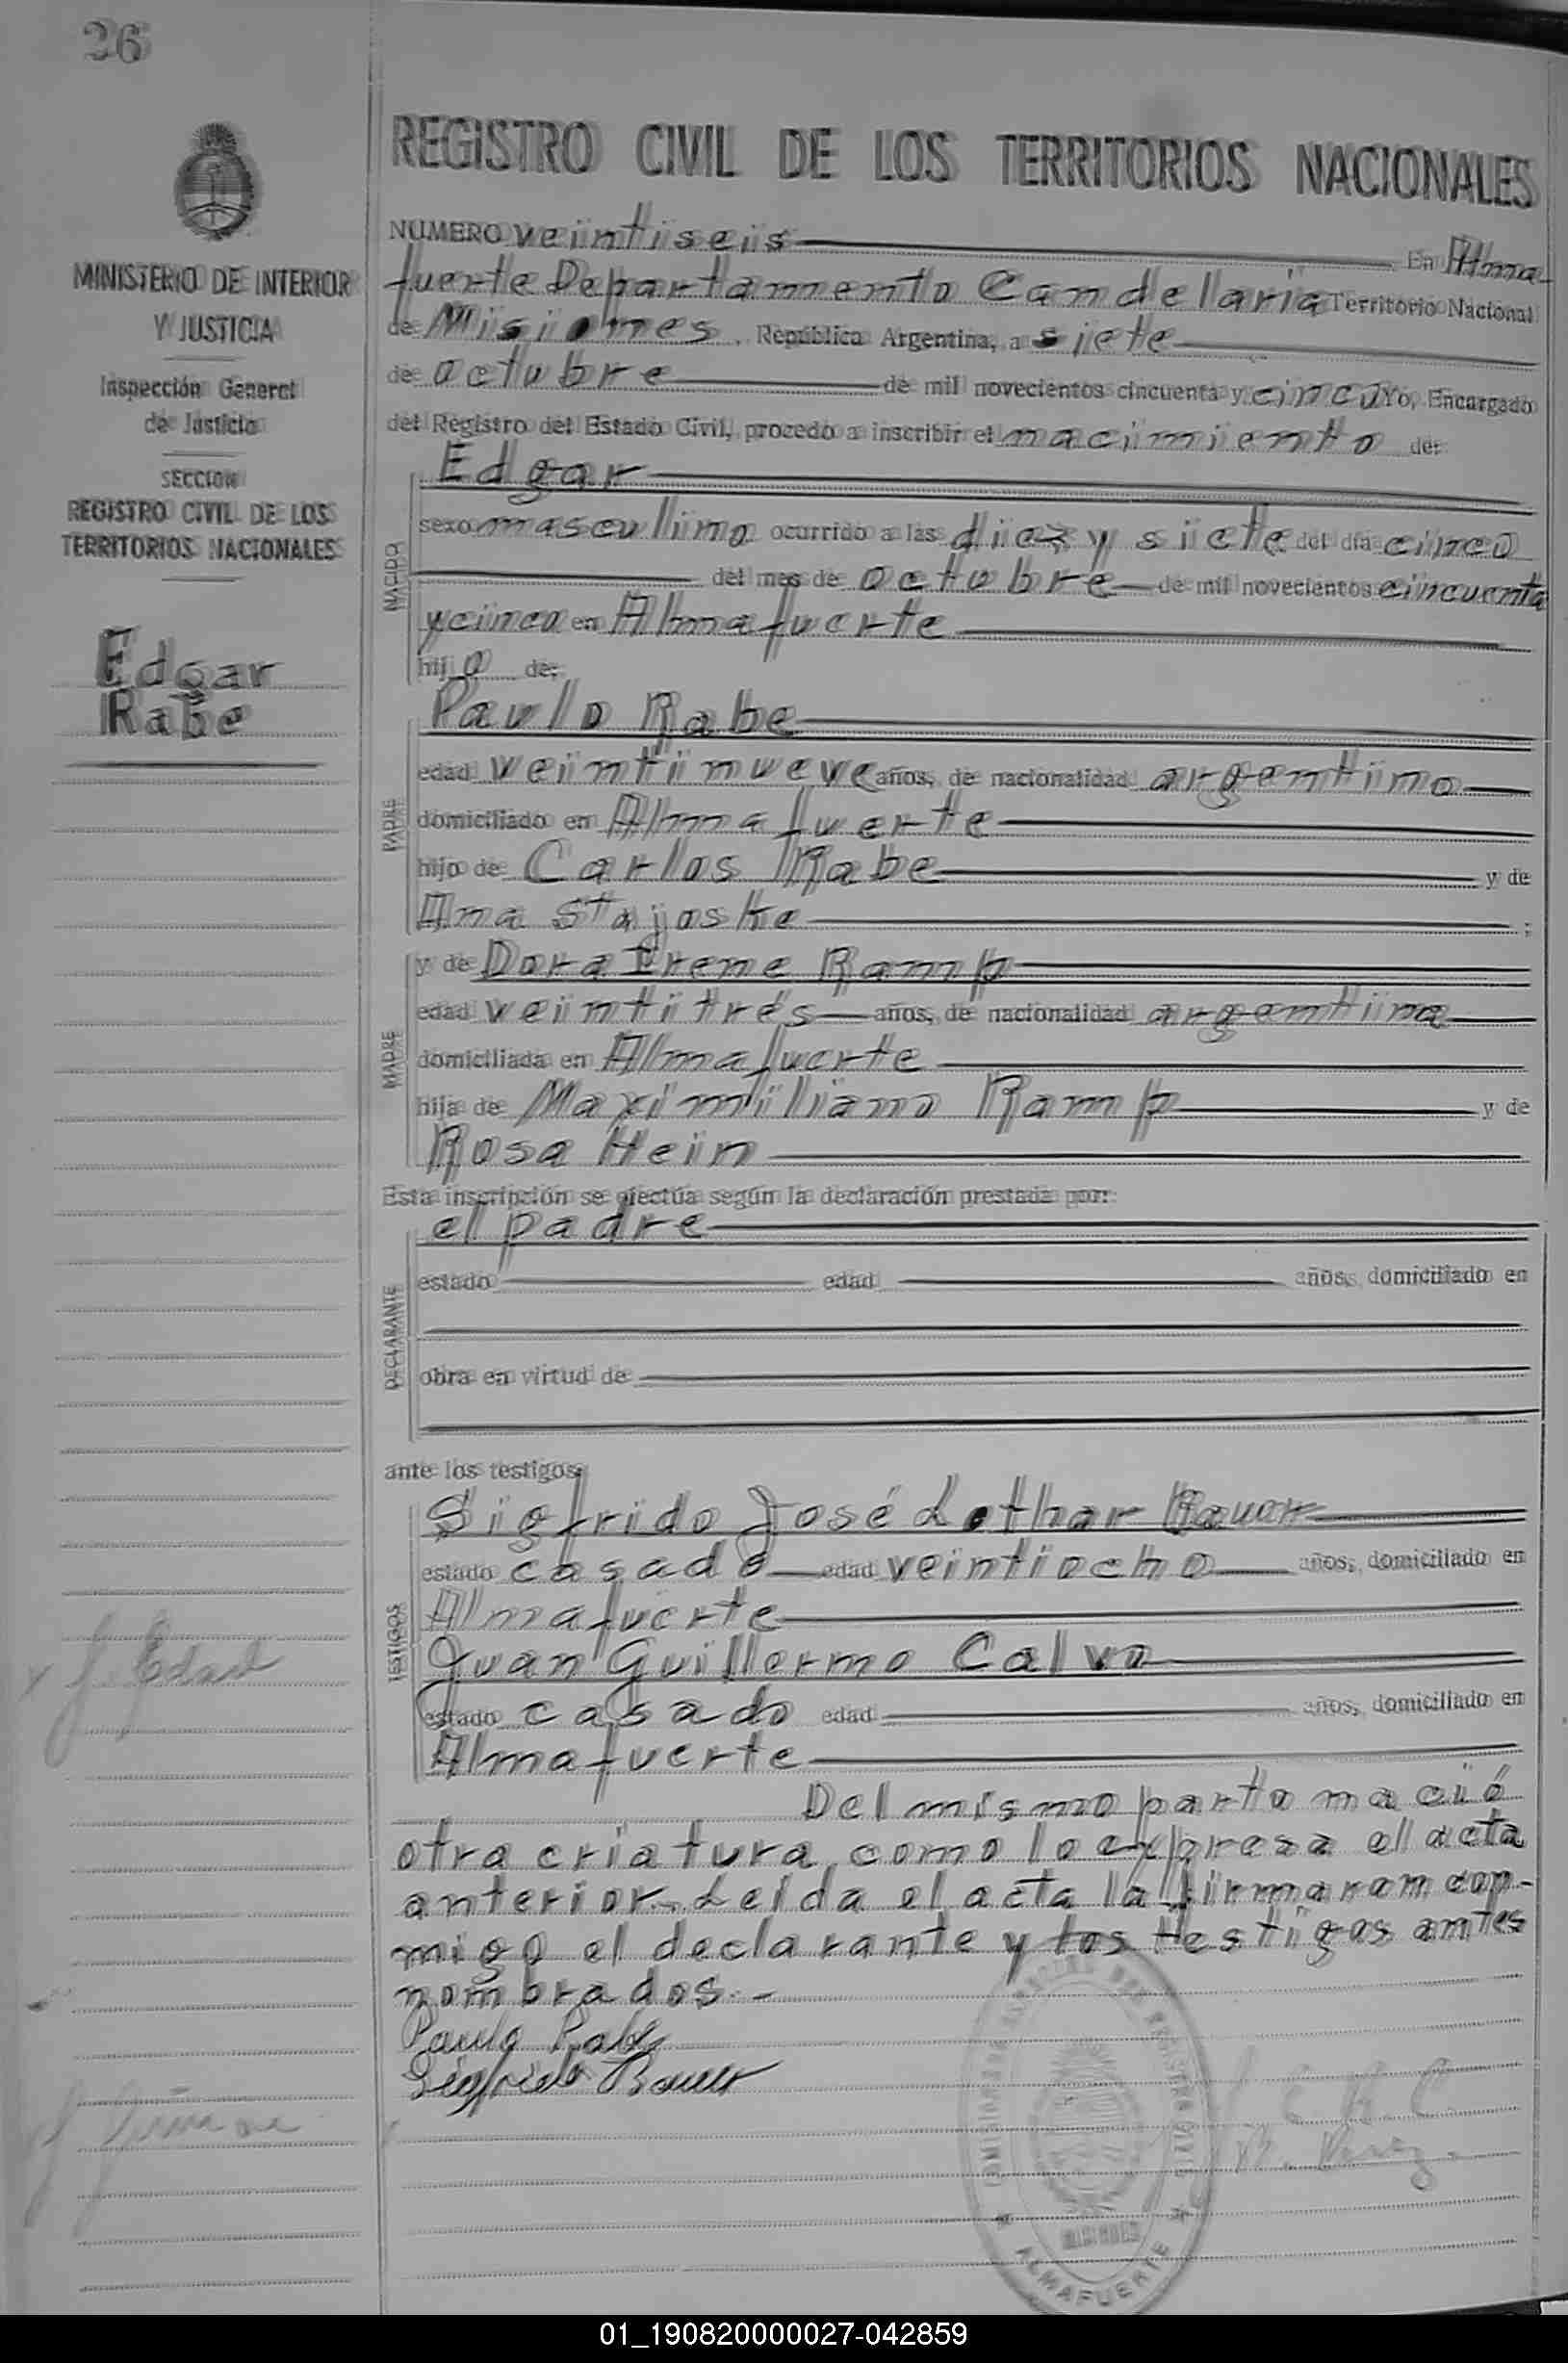 26
REGISTRO CIVIL DE LOS TERRITORIOS NACIONALES
MINISTERIO DE INTERIOR
Y JUSTICIA
Inspección General
de Justicia
SECCION
REGISTRO CIVIL DE LOS
TERRITORIOS NACIONALES
Edgar
Rabe
NUMERO veintiseis En Alma-
fuerte Departamento Candelaria Territorio Nacional
de Misiones, República Argentina, a siete
de octubre de mil novecientos cincuenta y cinco Yo, Encargado
del Registro del Estado Civil, procedo a inscribir el nacimiento de:
NACIDO
Edgar
sexo masculino ocurrido a las diez y siete del día cinco
del mes de octubre de mil novecientos cincuenta
y cinco en Almafuerte
hijo de:
PADRE
Paulo Rabe
edad veintinueve años, de nacionalidad argentino
domiciliado en Almafuerte
hijo de Carlos Rabe y de
Ana Stajoske ;
MADRE
y de Dora Irene Ramp
edad veintitrés años, de nacionalidad argentina
domiciliada en Almafuerte
hija de Maximiliano Ramp y de
Rosa Hein
Esta inscripción se efectúa según la declaración prestada por:
DECLARANTE
el padre
estado edad años, domiciliado en
obra en virtud de
ante los testigos:
TESTIGOS
Sigfrido José Lothar Bauer
estado casado edad veintiocho años, domiciliado en
Almafuerte
Juan Guillermo Calvo
estado casado edad años, domiciliado en
Almafuerte
Del mismo parto nació
otra criatura, como lo expresa el acta
anterior. Leída el acta la firmaron con-
migo el declarante y los testigos antes
nombrados.-
Paulo Rabe
Sigfrido Bauer
f. Edad
MISIONES
ALMAFUERTE
01_190820000027-042859